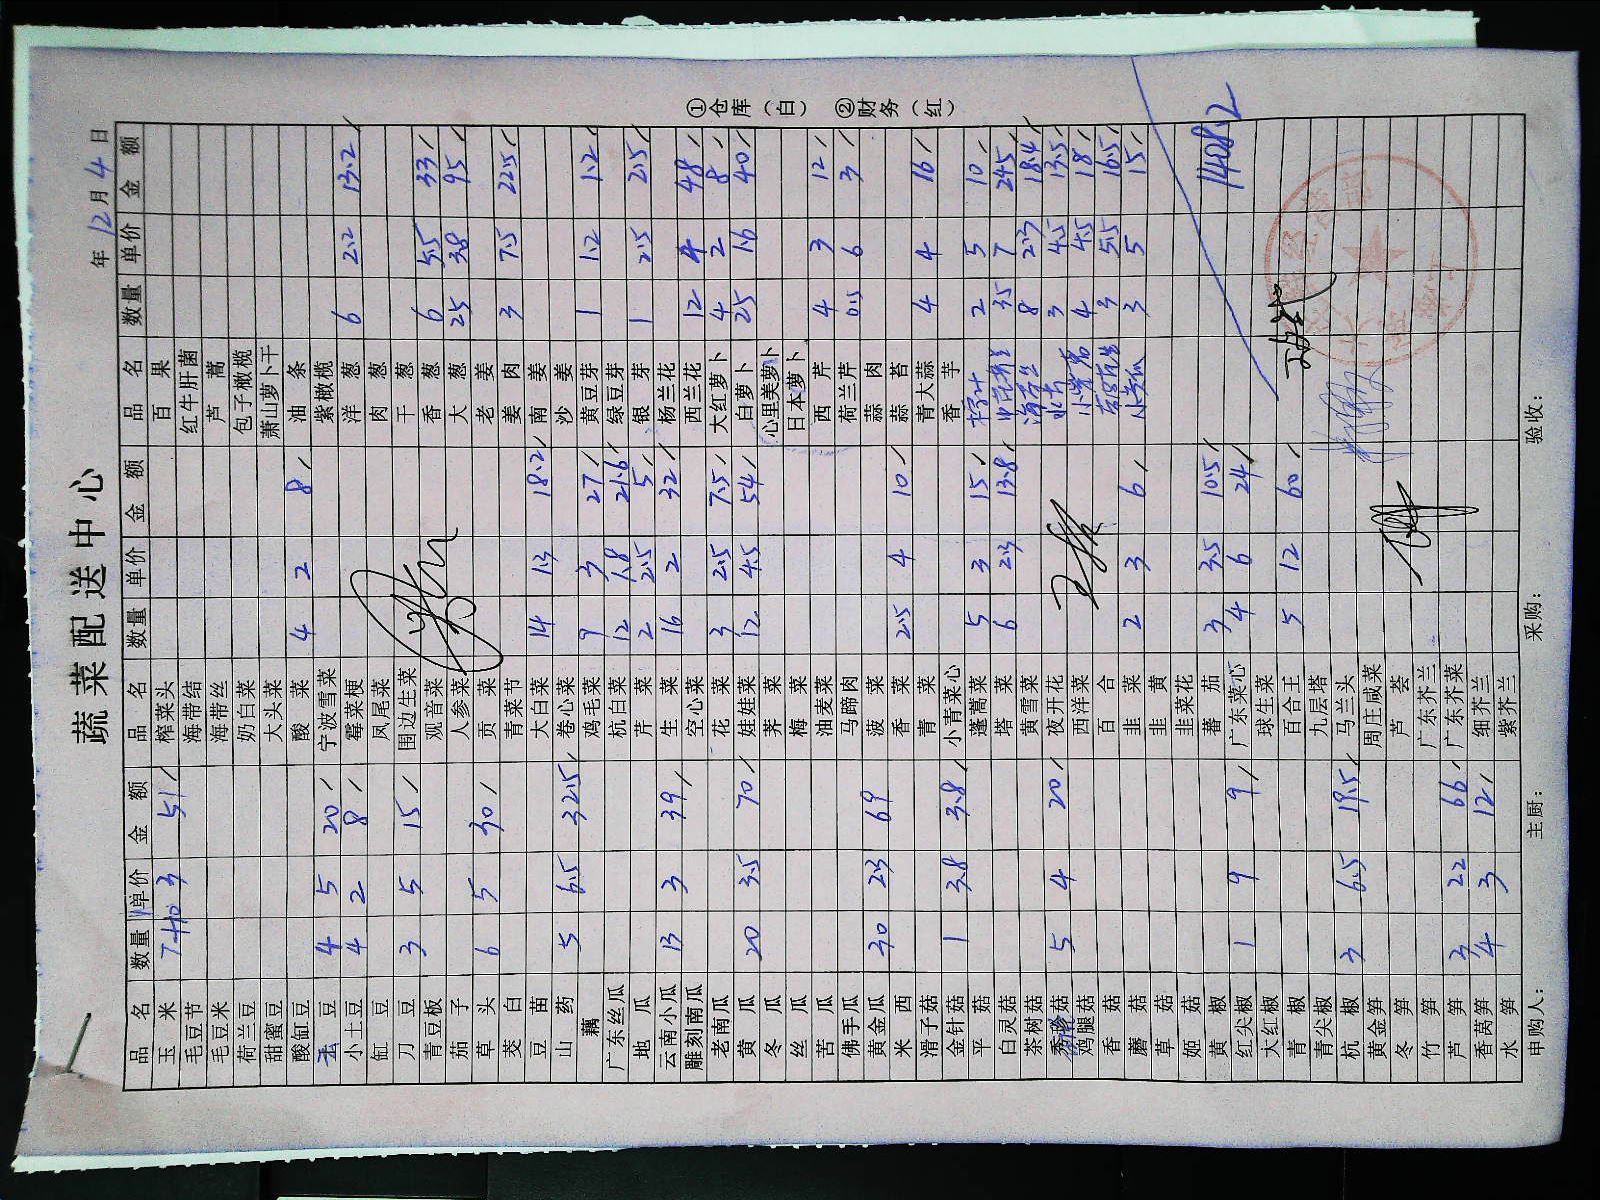 蔬菜配送中心
年 12 月 4 日
品名 数量 单价 金额 品名 数量 单价 金额 品名 数量 单价 金额
玉米 7+10 3 51 榨菜头 百果
毛豆节 海带结 红牛肝菌
毛豆米 海带丝 芦蒿
荷兰豆 奶白菜 包子橄榄
甜蜜豆 大头菜 萧山萝卜干
酸缸豆 酸菜 4 2 8 油条
云豆 4 5 20 宁波雪菜 紫橄榄
小土豆 4 2 8 霉菜梗 洋葱 6 2.2 13.2
缸豆 凤尾菜 肉葱
刀豆 3 5 15 围边生菜 干葱
青豆板 观音菜 香葱 6 5.5 33
茄子 人参菜 大葱 25 3.8 95
草头 6 5 30 贡菜 老姜
茭白 青菜节 姜肉 3 7.5 22.5
豆苗 大白菜 14 1.3 18.2 南姜
山药 5 6.5 32.5 卷心菜 沙姜
藕 鸡毛菜 9 3 27 黄豆芽 1 1.2 1.2
广东丝瓜 杭白菜 12 1.8 21.6 绿豆芽
地瓜 芹菜 2 2.5 5 银芽 1 2.5 2.5
云南小瓜 13 3 39 生菜 16 2 32 杨兰花
雕刻南瓜 空心菜 西兰花 12 4 48
老南瓜 花菜 3 2.5 7.5 大红萝卜 4 2 8
黄瓜 20 3.5 70 娃娃菜 12 4.5 54 白萝卜 25 1.6 40
冬瓜 荠菜 心里美萝卜
丝瓜 梅菜 日本萝卜
苦瓜 油麦菜 西芹 4 3 12
佛手瓜 马蹄肉 荷兰芹 0.5 6 3
黄金瓜 30 2.3 69 菠菜 蒜肉
米西 香菜 2.5 4 10 蒜苔
滑子菇 青菜 青大蒜 4 4 16
金针菇 1 3.8 3.8 小青菜心 香芋
平菇 蓬蒿菜 5 3 15 2 5 10
白灵菇 塔菜 6 2.3 13.8 35 7 245
茶树菇 黄雪菜 8 2.3 18.4
秀珍菇 5 4 20 夜开花 3 4.5 13.5
鸡腿菇 西洋菜 4 4.5 18
香菇 百合 3 5.5 16.5
蘑菇 韭菜 2 3 6 3 5 15
草菇 韭黄
姬菇 韭菜花
黄椒 蕃茄 3 3.5 10.5 1408.2
红尖椒 1 9 9 广东菜心 4 6 24
大红椒 球生菜
青椒 百合王 5 12 60
青尖椒 九层塔
杭椒 3 6.5 19.5 马兰头
黄金笋 周庄咸菜
冬笋 芦荟
竹笋 广东芥兰
芦笋 3 22 66 广东芥菜
香莴笋 4 3 12 细芥兰
水笋 紫芥兰
申购人： 主厨： 采购： 验收：
①仓库（白） ②财务（红）